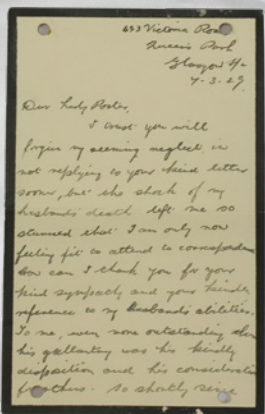 693 Victoria Road
Queen's Park
Glasgow S/2
7-3-29
Dear Lady Porter,
I trust you will
forgive my seeming neglect in
not replying to your kind letter
sooner, but the shock of my
husband's death left me so
stunned that I am only now
feeling fit to attend to correspondence
How can I thank you for your
kind sympathy and your kindly
reference to my husband's abilities.
To me, even more outstanding than
his gallantry was his kindly
disposition and his consideration
for others. So shortly